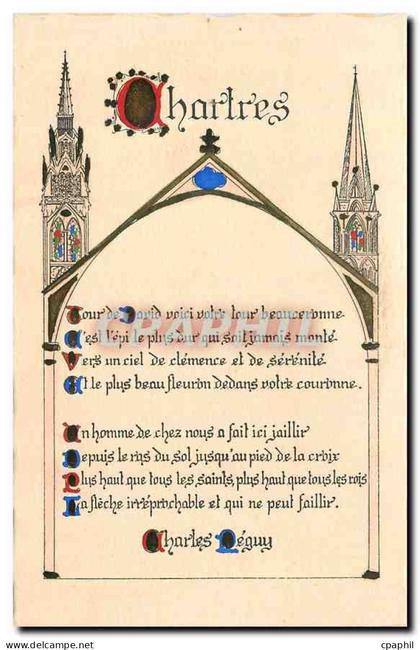 Chartres
Tour de David voici votre tour beauceronne
C'est l'épi le plus dur qui soit jamais monté
Vers un ciel de clémence et de sérénité
Et le plus beau fleuron dedans votre couronne.
Un homme de chez nous a fait ici jaillir
Depuis le ras du sol jusqu'au pied de la croix
Plus haut que tous les saints, plus haut que tous les rois
La flèche irréprochable et qui ne peut faillir.
Charles Péguy
CPAPHIL
www.delcampe.net
cpaphil